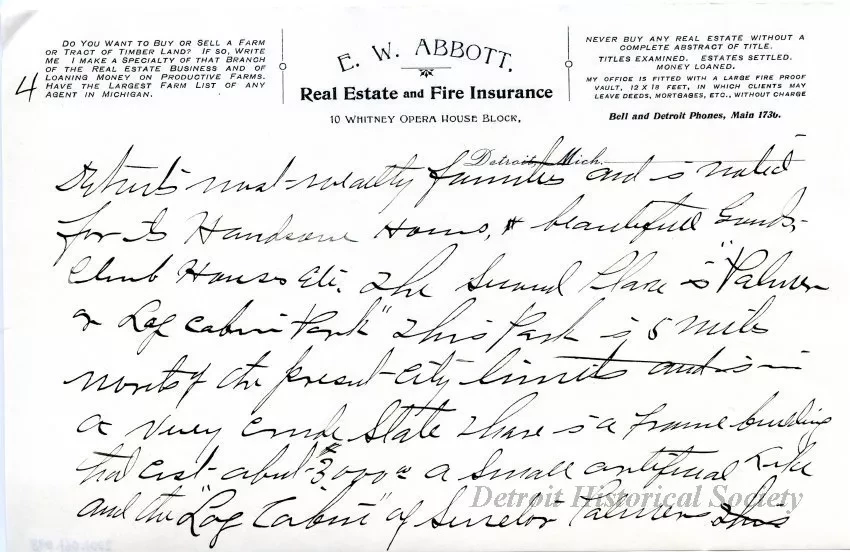 4
Do You Want to Buy or Sell a Farm
or Tract of Timber Land? If so, Write
me I make a Specialty of that Branch
of the Real Estate Business and of
Loaning Money on Productive Farms.
Have the Largest Farm List of any
Agent in Michigan.
E. W. ABBOTT.
Real Estate and Fire Insurance
10 Whitney Opera House Block,
Never buy any real estate without a
complete abstract of title.
Titles examined. Estates settled.
Money loaned.
My office is fitted with a large fire proof
vault, 12 x 18 feet, in which clients may
leave deeds, mortgages, etc., without charge
Bell and Detroit Phones, Main 1736.
Detroit, Mich.
Detroit's most wealthy families and is noted
for its Handsome Homes, & beautifull Grounds-
Club Houses Etc. The Second Place is "Palmer
or Log Cabin Park" This Park is 5 miles
north of the present City limits and is in
a very crude State There is a frame building
that cost about $3,000 a small artificial Lake
and the "Log Cabin" of Senator Palmers This
Detroit Historical Society